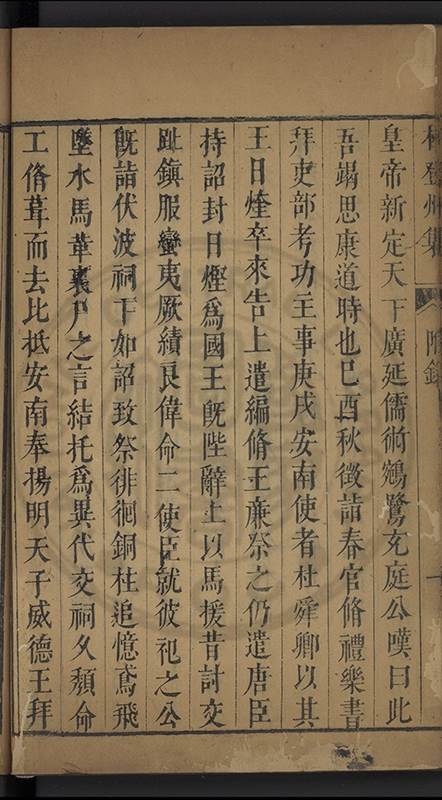 林登州集
附錄
一
皇帝新定天下廣延儒術鵷鷺充庭公嘆曰此
吾竭思康道時也已酉秋徵詣春官脩禮樂書
拜吏部考功主事庚戌安南使者杜舜卿以其
王日煃卒來告上遣編脩王廉祭之仍遣唐臣
持詔封日熞爲國王旣陛辭上以馬援昔討交
趾鎭服蠻夷厥績良偉命二使臣就彼祀之公
旣詣伏波祠下如詔致祭徘徊銅柱追憶鳶飛
墜水馬革裹尸之言結托爲異代交祠久頽命
工脩葺而去比抵安南奉揚明天子威德王拜